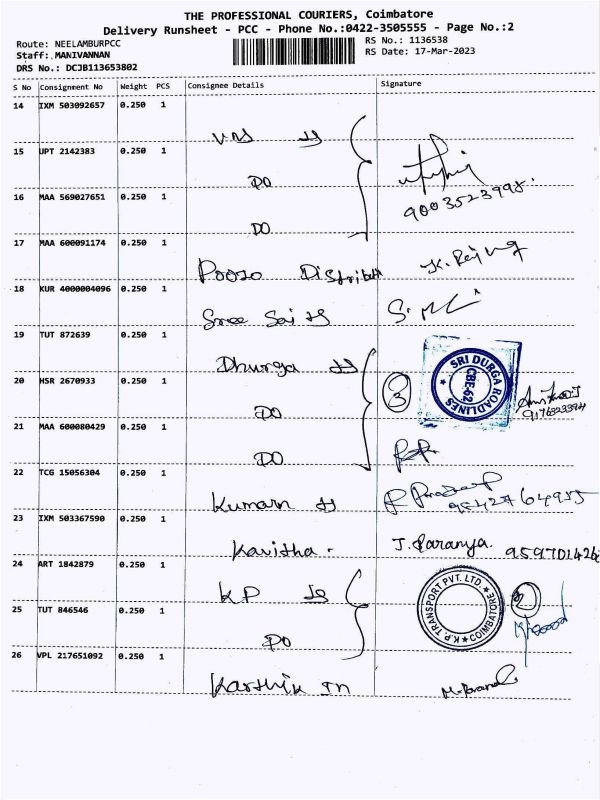 THE PROFESSIONAL COURIERS, Coimbatore
Delivery Runsheet - PCC - Phone No.:0422-3505555 - Page No.:2
Route: NEELAMBURPCC
Staff: MANIVANNAN
DRS No.: DCJB113653802
RS No.: 1136538
RS Date: 17-Mar-2023
S No Consignment No Weight PCS Consignee Details Signature
14 IXM 503092657 0.250 1
15 UPT 2142383 0.250 1
DO
16 MAA 569027651 0.250 1
DO
9003523998.
17 MAA 600091174 0.250 1
18 KUR 4000004096 0.250 1
Sree Sai
19 TUT 872639 0.250 1
Dhurga
SRI DURGA ROADLINES
CBE-62
20 HSR 2670933 0.250 1
DO
3
21 MAA 600080429 0.250 1
DO
22 TCG 15056304 0.250 1
Kumaran
23 IXM 503367590 0.250 1
Kavitha. J. Saranya.
24 ART 1842879 0.250 1
KP
K.P. TRANSPORT PVT. LTD.
COIMBATORE
2
25 TUT 846546 0.250 1
DO
26 VPL 217651092 0.250 1
Karthik